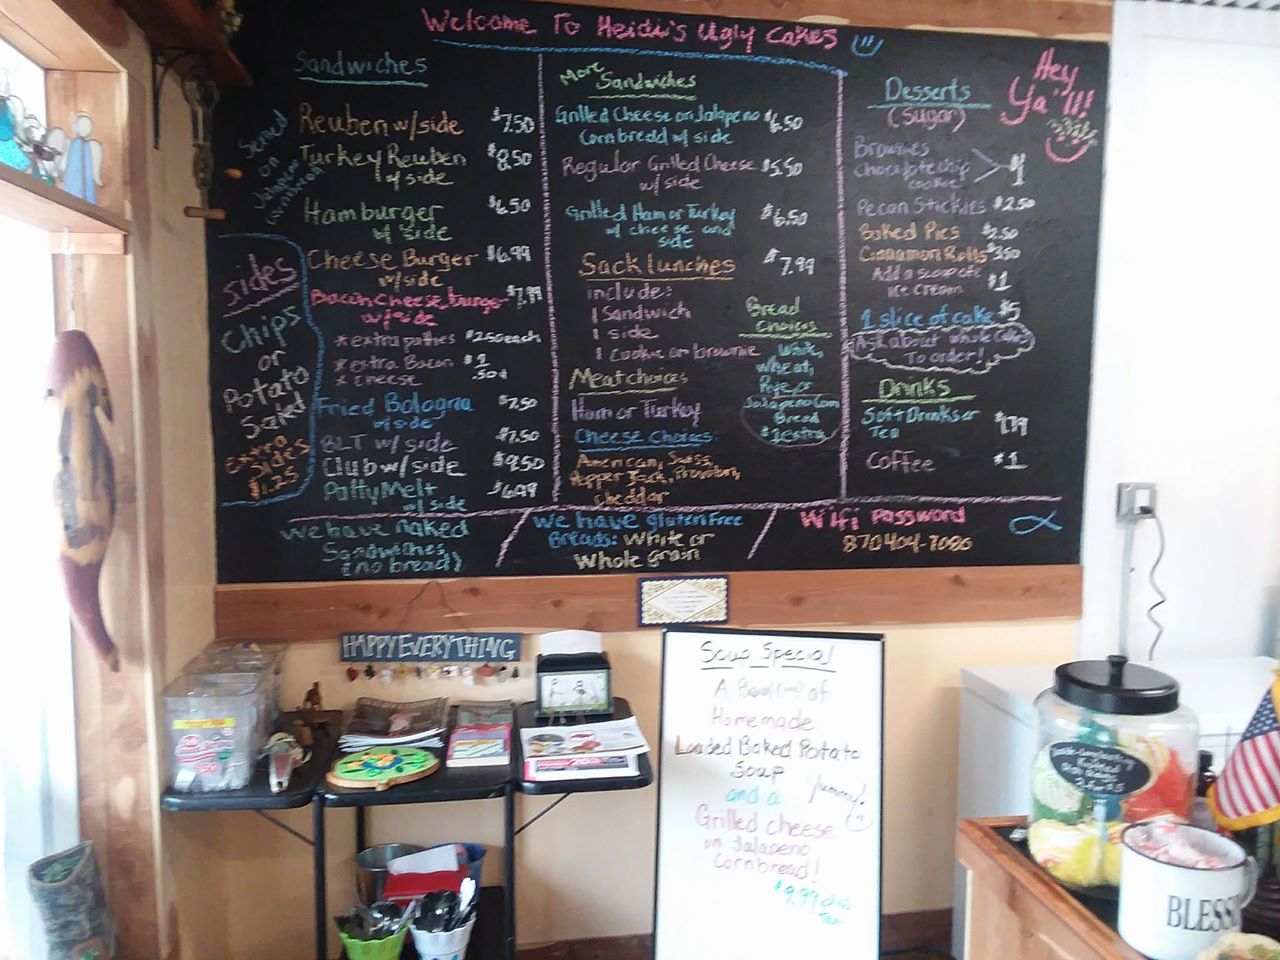 Welcome To Heidi's Ugly Cakes
Sandwiches
Served
on
Jalapeno
Cornbread
Reuben w/side $7.50
Turkey Reuben $8.50
w/side
Hamburger $6.50
w/side
Cheese Burger $6.99
w/side
Bacon Cheese burger $7.99
w/side
* extra patties $2.50 each
* extra Bacon $1
* cheese .50¢
Fried Bologna $7.50
w/side
BLT w/side $7.50
Club w/side $9.50
Patty Melt $6.99
w/side
Sides
Chips
or
Potato
Salad
Extra
Sides
$1.25
More Sandwiches
Grilled Cheese on Jalapeno $6.50
Cornbredd w/ side
Regular Grilled Cheese $5.50
w/side
Grilled Ham or Turkey $6.50
w/ cheese and
side
Sack lunches $7.99
include:
1 Sandwich
1 side
1 cookie or brownie
Meat choices
Ham or Turkey
Cheese Choices:
American, Swiss,
Pepper Jack, Provolon,
cheddar
Bread
Choices
White,
Wheat,
Rye, or
Jalapeno Corn
Bread
$1 extra
Desserts
(sugar)
Hey
Ya'll!
Brownies
chocolate chip $1
cookie
Pecan Stickies $2.50
Baked Pies $2.50
Cinnamon Rolls $3.50
Add a scoop of
ice cream $1
1 slice of cake $5
Ask about whole cakes
To order!
Drinks
Soft Drinks or
Tea
Coffee $1
We have naked
Sandwiches
(no bread)
We have gluten Free
Breads: White or
Whole grain
Wifi Password
870404-7086
HAPPY EVERYTHING
Soup Special
A Bowl of
Homemade
Loaded Baked Potato
Soup
and a Yummy!
Grilled cheese
on Jalapeno
Cornbread!
$9.99
BLESS